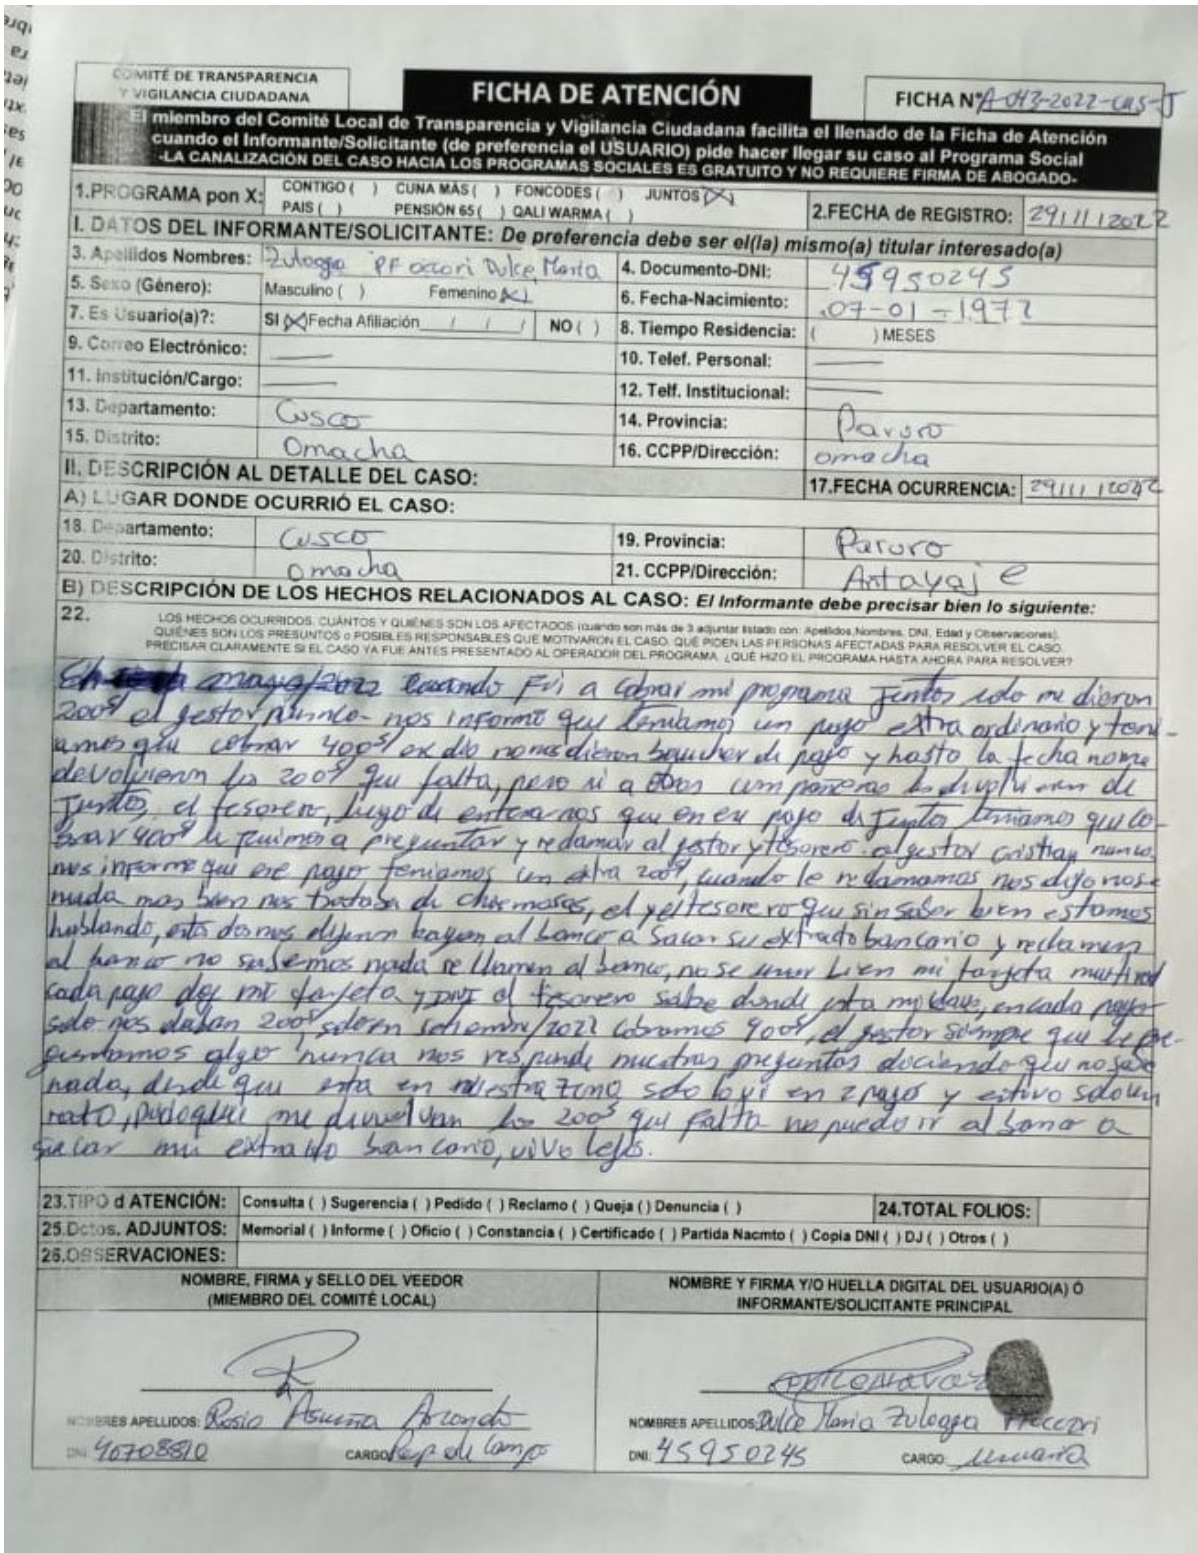 COMITÉ DE TRANSPARENCIA
Y VIGILANCIA CIUDADANA
FICHA DE ATENCIÓN
FICHA N° A-043-2022-CUS-J
El miembro del Comité Local de Transparencia y Vigilancia Ciudadana facilita el llenado de la Ficha de Atención
cuando el Informante/Solicitante (de preferencia el USUARIO) pide hacer llegar su caso al Programa Social
-LA CANALIZACIÓN DEL CASO HACIA LOS PROGRAMAS SOCIALES ES GRATUITO Y NO REQUIERE FIRMA DE ABOGADO-
1.PROGRAMA pon X: CONTIGO ( ) CUNA MÁS ( ) FONCODES ( ) JUNTOS (X)
PAIS ( ) PENSIÓN 65 ( ) QALI WARMA ( )
2.FECHA de REGISTRO: 29/11/2022
I. DATOS DEL INFORMANTE/SOLICITANTE: De preferencia debe ser el(la) mismo(a) titular interesado(a)
3. Apellidos Nombres: Zuloaga Dulce Maria
4. Documento-DNI: 45950245
5. Sexo (Género): Masculino ( ) Femenino (X)
6. Fecha-Nacimiento: 07-01-1977
7. Es Usuario(a)?: SI (X) Fecha Afiliación / / / NO ( )
8. Tiempo Residencia: ( ) MESES
9. Correo Electrónico:
10. Telef. Personal:
11. Institución/Cargo:
12. Telf. Institucional:
13. Departamento: Cusco
14. Provincia: Paruro
15. Distrito: Omacha
16. CCPP/Dirección: omacha
II. DESCRIPCIÓN AL DETALLE DEL CASO:
17.FECHA OCURRENCIA: 29/11/2022
A) LUGAR DONDE OCURRIÓ EL CASO:
18. Departamento: Cusco
19. Provincia: Paruro
20. Distrito: Omacha
21. CCPP/Dirección: Antayaje
B) DESCRIPCIÓN DE LOS HECHOS RELACIONADOS AL CASO: El Informante debe precisar bien lo siguiente:
22. LOS HECHOS OCURRIDOS, CUÁNTOS Y QUIÉNES SON LOS AFECTADOS (cuando son más de 3 adjuntar listado con: Apellidos,Nombres, DNI, Edad y Observaciones).
QUIÉNES SON LOS PRESUNTOS o POSIBLES RESPONSABLES QUE MOTIVARON EL CASO. QUÉ PIDEN LAS PERSONAS AFECTADAS PARA RESOLVER EL CASO.
PRECISAR CLARAMENTE SI EL CASO YA FUE ANTES PRESENTADO AL OPERADOR DEL PROGRAMA. ¿QUÉ HIZO EL PROGRAMA HASTA AHORA PARA RESOLVER?
mayo/2022 cuando Fui a cobrar mi programa Juntos solo me dieron
200s el gestor nunca nos informó que teniamos un pago extra ordinario y teni-
amos que cobrar 400s ese dia no nos dieron boucher de pago y hasta la fecha no me
devolvieron los 200s que falta, pero si a otras compañeras les devolvieron de
Juntos, el tesorero, luego de enterarnos que en ese pago de Juntos teniamos que co-
brar 400s le fuimos a preguntar y reclamar al gestor y tesorero. el gestor Cristhian nunca
nos informe que ese pago teniamos un extra 200s, cuando le reclamamos nos dijo no se
nada mas bien nos trataba de chismosas, el y el tesorero que sin saber bien estamos
hablando, estos dos nos dijeron vayan al banco a Sacar su extrado bancario y reclamen
al banco no sabemos nada reclamen al banco, no se usar bien mi tarjeta multired
cada pago doy mi tarjeta y DNI el tesorero sabe donde esta mi clave, en cada pago
solo nos daban 200s solo en setiembre/2022 cobramos 900s, el gestor siempre que le pre-
guntamos algo nunca nos responde nuestras preguntas diciendo que no sabe
nada, desde que esta en nuestra zona solo lo vi en 2 pago y estivo solo un
rato, pido que me devuelvan los 200s que falta no puedo ir al banco a
sacar mi extracto bancario, vivo lejos.
23.TIPO d ATENCIÓN: Consulta ( ) Sugerencia ( ) Pedido ( ) Reclamo ( ) Queja ( ) Denuncia ( )
24.TOTAL FOLIOS:
25.Dctos. ADJUNTOS: Memorial ( ) Informe ( ) Oficio ( ) Constancia ( ) Certificado ( ) Partida Nacmto ( ) Copia DNI ( ) DJ ( ) Otros ( )
26.OBSERVACIONES:
NOMBRE, FIRMA y SELLO DEL VEEDOR
(MIEMBRO DEL COMITÉ LOCAL)
NOMBRE Y FIRMA Y/O HUELLA DIGITAL DEL USUARIO(A) Ó
INFORMANTE/SOLICITANTE PRINCIPAL
NOMBRES APELLIDOS: Rosio Asunta
DNI: 40708810 CARGO: Rep de Campo
NOMBRES APELLIDOS: Dulce Maria Zuloaga
DNI: 45950245 CARGO: usuaria